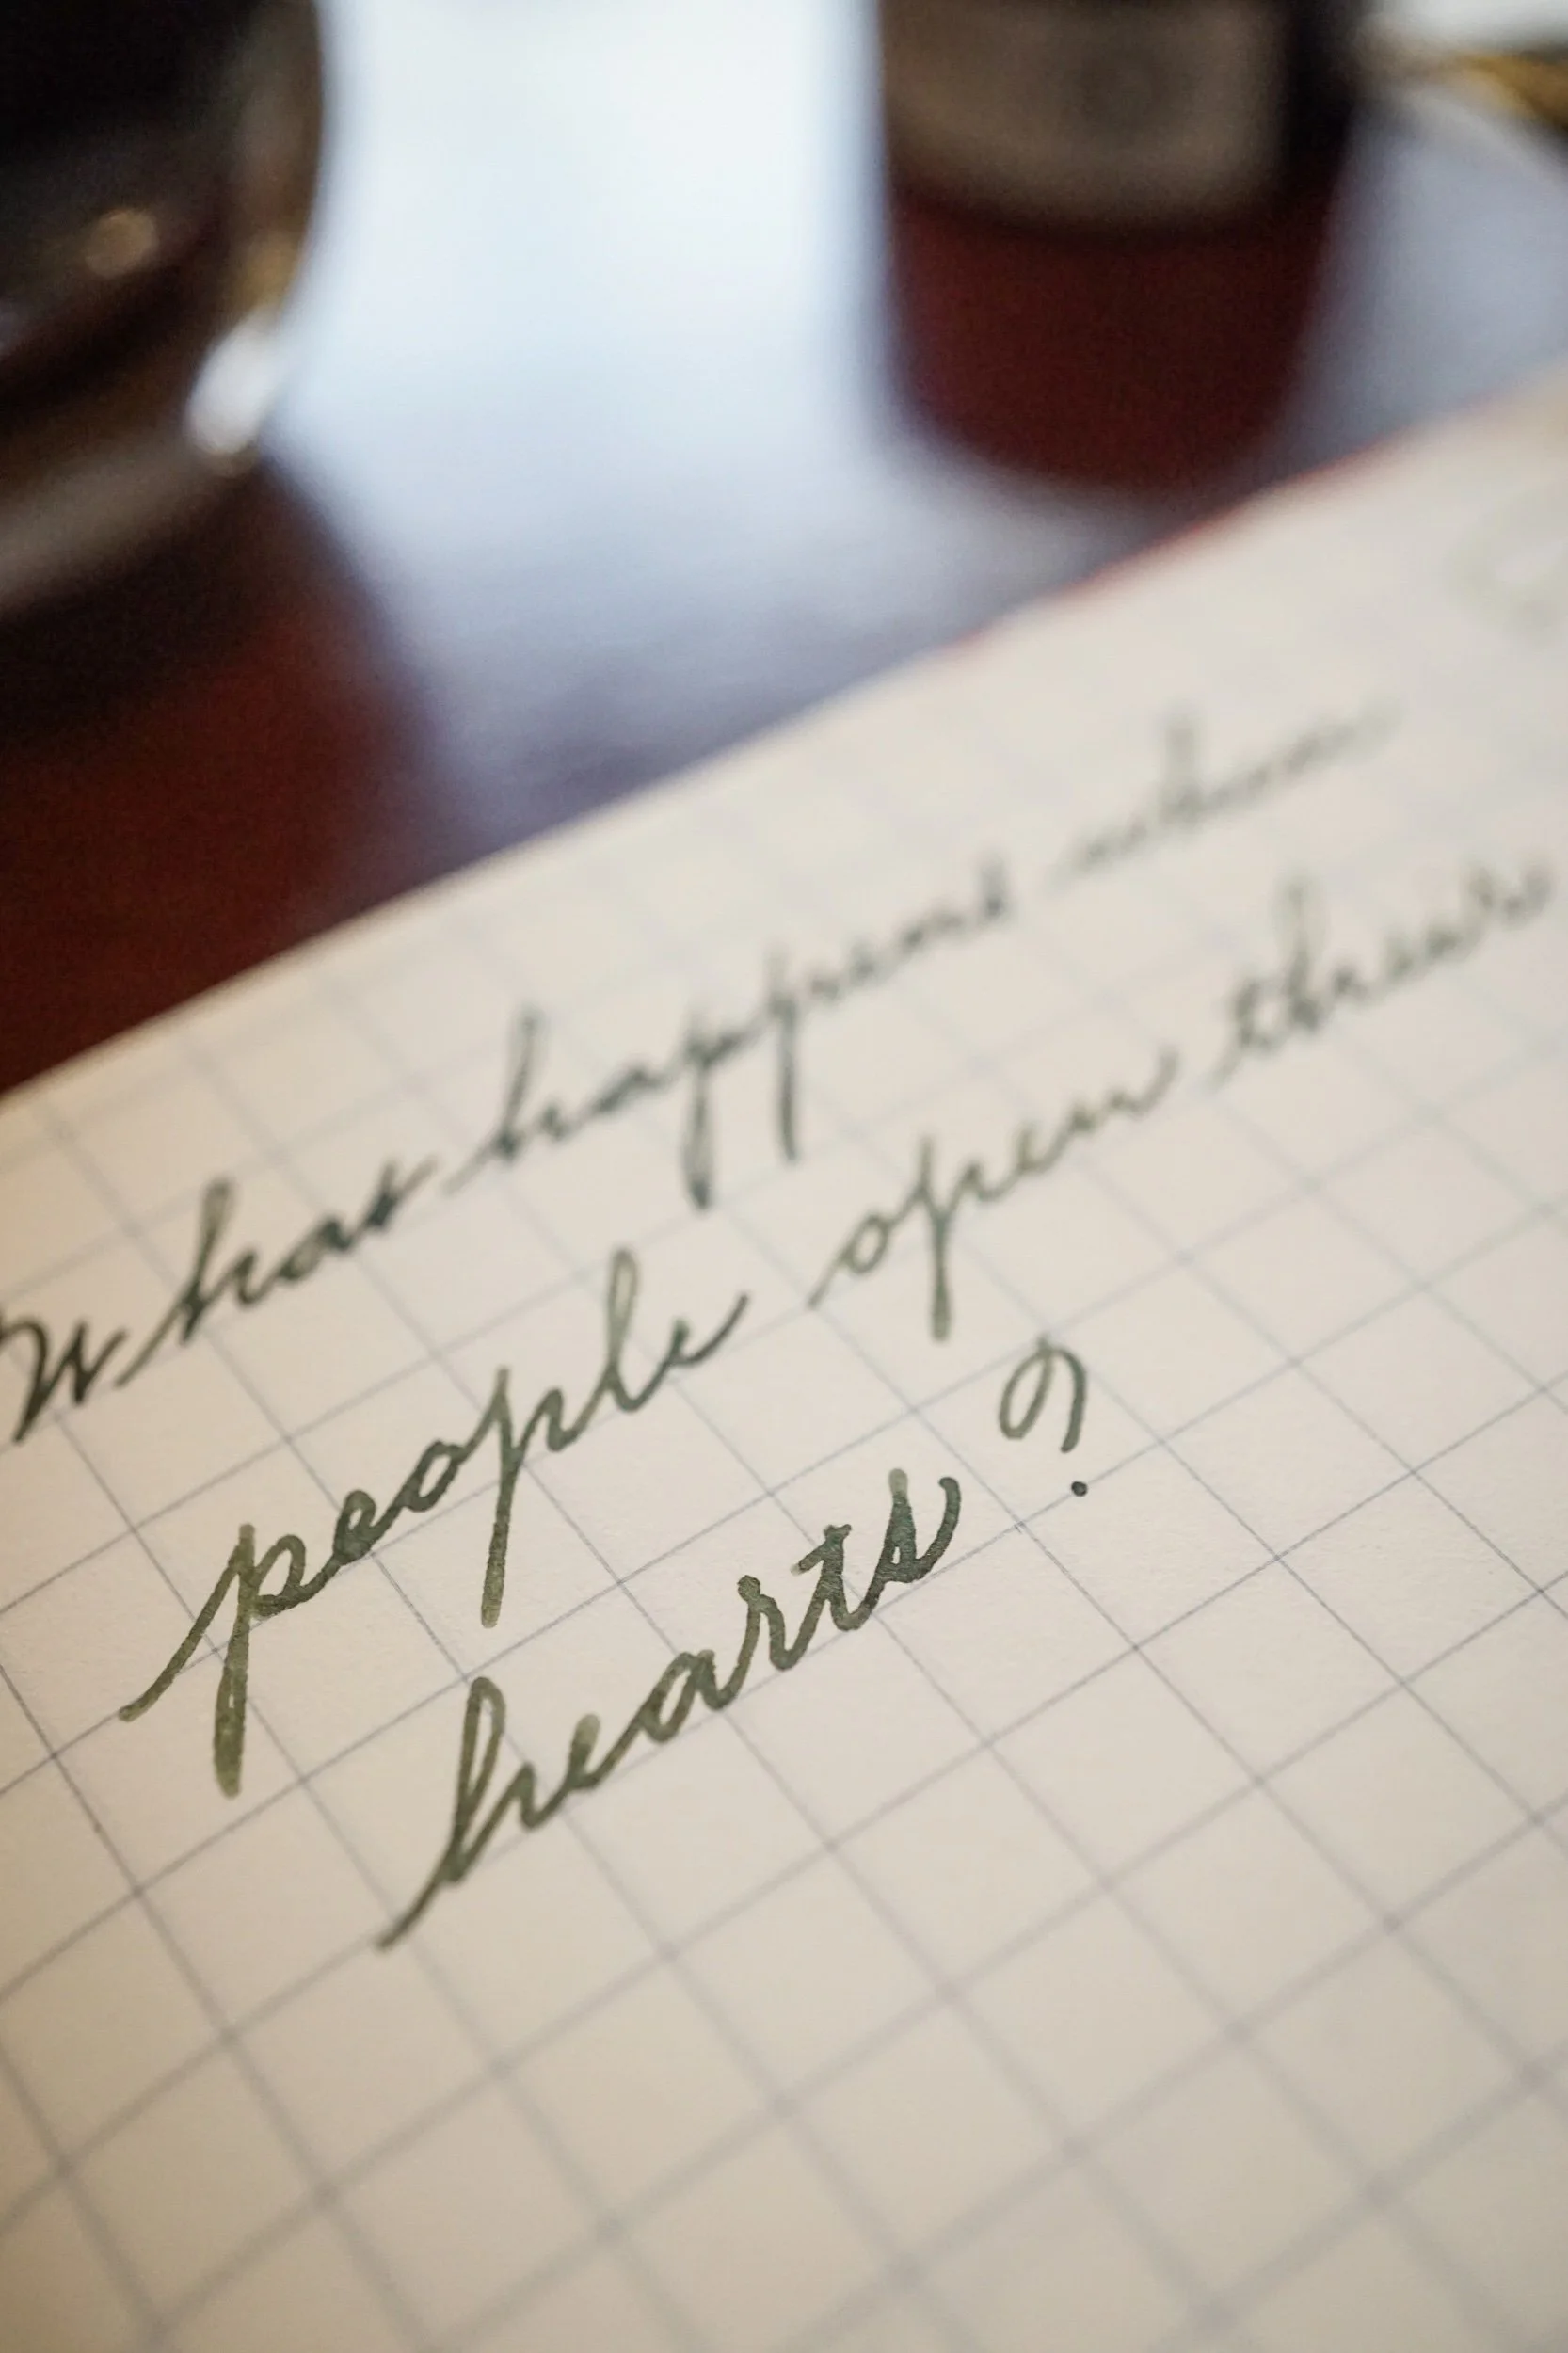 What happens when
people open their
hearts?